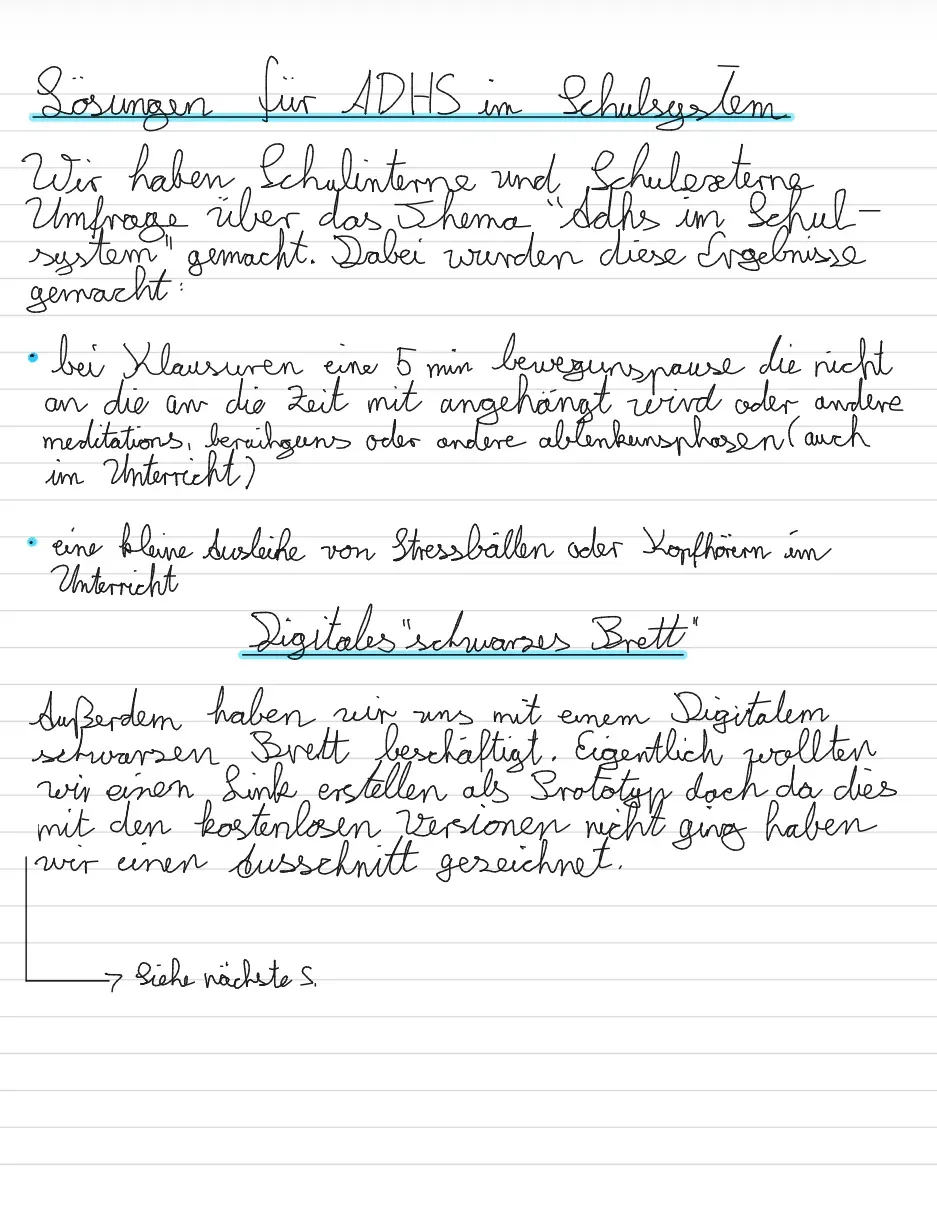 Lösungen für ADHS im Schulsystem
Wir haben Schulinterne und Schulexterne
Umfrage über das Thema "Adhs im Schul-
system" gemacht. Dabei wurden diese Ergebnisse
gemacht:
• bei Klausuren eine 5 min bewegunspause die nicht
an die an die Zeit mit angehängt wird oder andere
meditations, beruihguns oder andere ablenkunsphasen (auch
im Unterricht)
• eine kleine Ausleihe von Stressbällen oder Kopfhörern im
Unterricht
Digitales "schwarzes Brett"
Außerdem haben wir uns mit einem Digitalem
schwarzen Brett beschäftigt. Eigentlich wollten
wir einen Link erstellen als Prototyp doch da dies
mit den kostenlosen Versionen nicht ging haben
wir einen Ausschnitt gezeichnet.
→ Siehe nächste S.